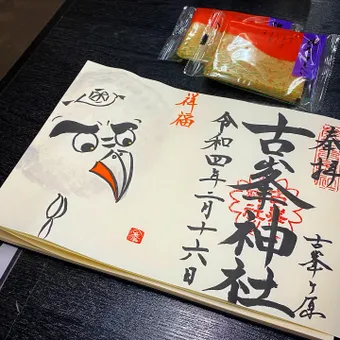 奉拝
古峯ヶ原
古峯神社
令和四年二月十六日
祥福